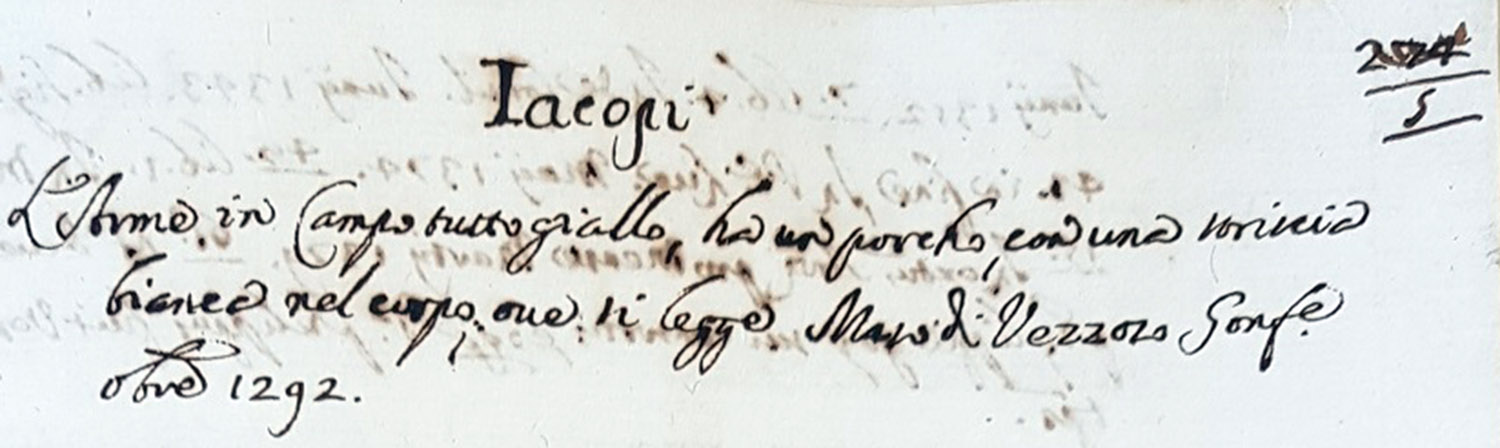 Iacopi
5
L'Arme in Campo tutto giallo, ha un porcho, con una striscia
bianca nel corpo, oue si legge Maso di Vezzozo Gonfe.
obre 1292.